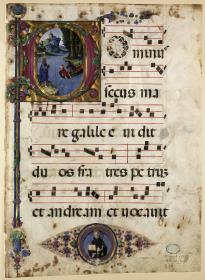 DOminu
seccus ma
re galilee vi dit
du os fra tres pe trus
et andream et uocauit